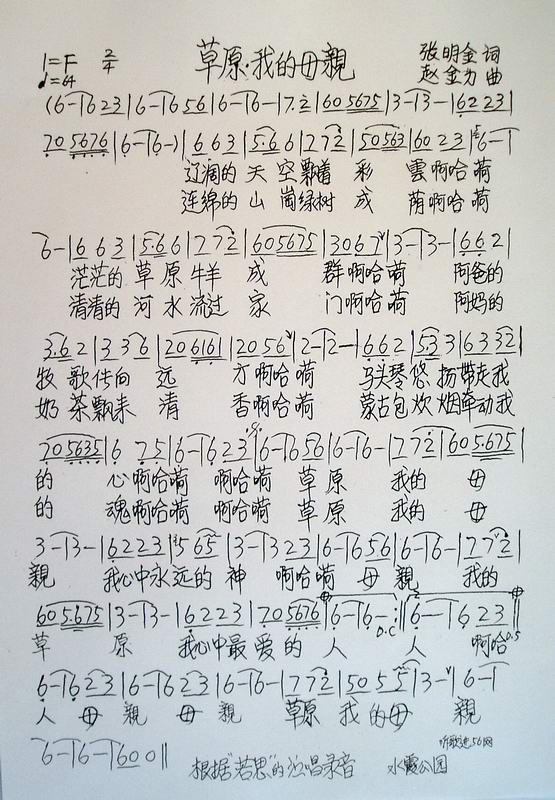 1=F 2/4 草原·我的母親 张明金 词
♩=64 赵金力 曲
(6-|6 23|6-|6 56|6-|6-|7.2|605675|3-|3-|6223|
705676|6-|6-)|663|5.66|772|50563|6023|6-|
辽阔的 天 空飘着 彩 雲啊哈嗬
连绵的 山 崗绿树 成 荫啊哈嗬
6-|663|5.66|772|605675|3067|3-|3-|662|
茫茫的 草 原 牛羊 成 群啊哈嗬 阿爸的
清清的 河 水 流过 家 门啊哈嗬 阿妈的
3.62|336|206161|2056|2-|2-|662|533|6332|
牧 歌传向 远 方啊哈嗬 马头琴悠 扬带走我
奶 茶飘来 清 香啊哈嗬 蒙古包炊 烟牵动我
705635|6 75|6-|6 23|6-|656|6-|6-|772|605675|
的 心啊哈嗬 啊哈嗬 草 原 我的 母
的 魂啊哈嗬 啊哈嗬 草 原 我的 母
3-|3-|6223|565|3-|323|6-|656|6-|6-|772|
親 我心中永远的 神 啊哈嗬 母 親 我的
605.675|3-|3-|6223|705676|6-|6-:‖6-|6 23‖
草 原 我心中最 爱的 人 D.C 人 啊哈 D.S
6-|623|6-|623|6-|6-|772|505 5|3-|6-|
人 母 親 母 親 草原 我 的母 親
6-|6-|600‖ 听歌进56网
根据"若思"的演唱录音 水霞公园